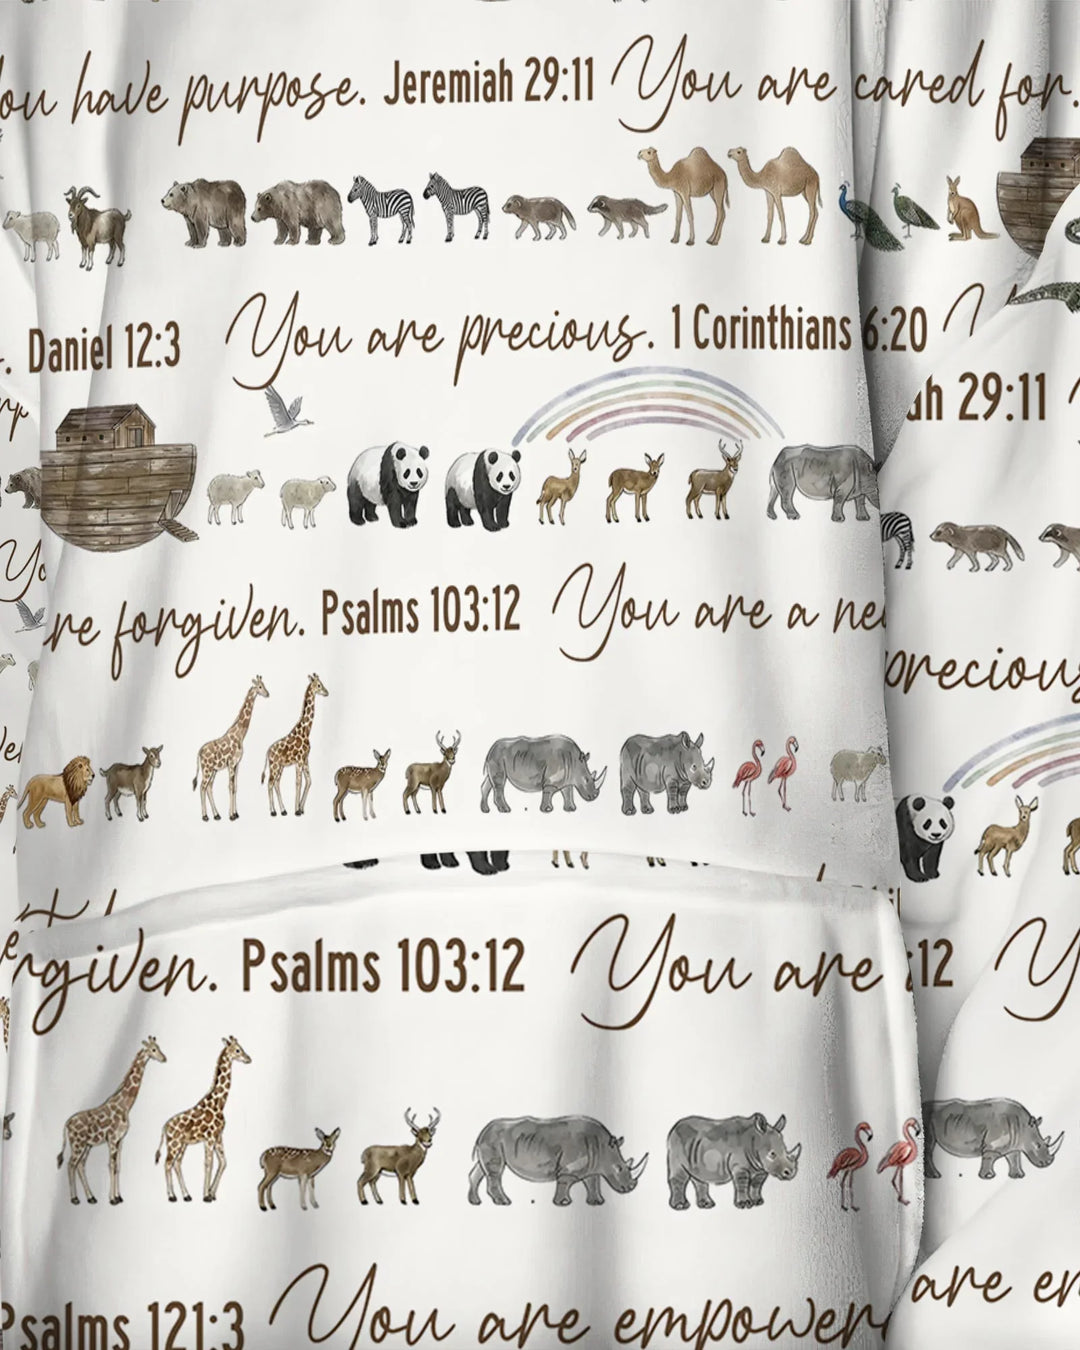 ou have purpose. Jeremiah 29:11 You are cared for.
. Daniel 12:3 You are precious. 1 Corinthians 6:20
29:11
re forgiven. Psalms 103:12 You are a
precious
rgiven. Psalms 103:12 You are
:12
Psalms 121:3 You are empower
are